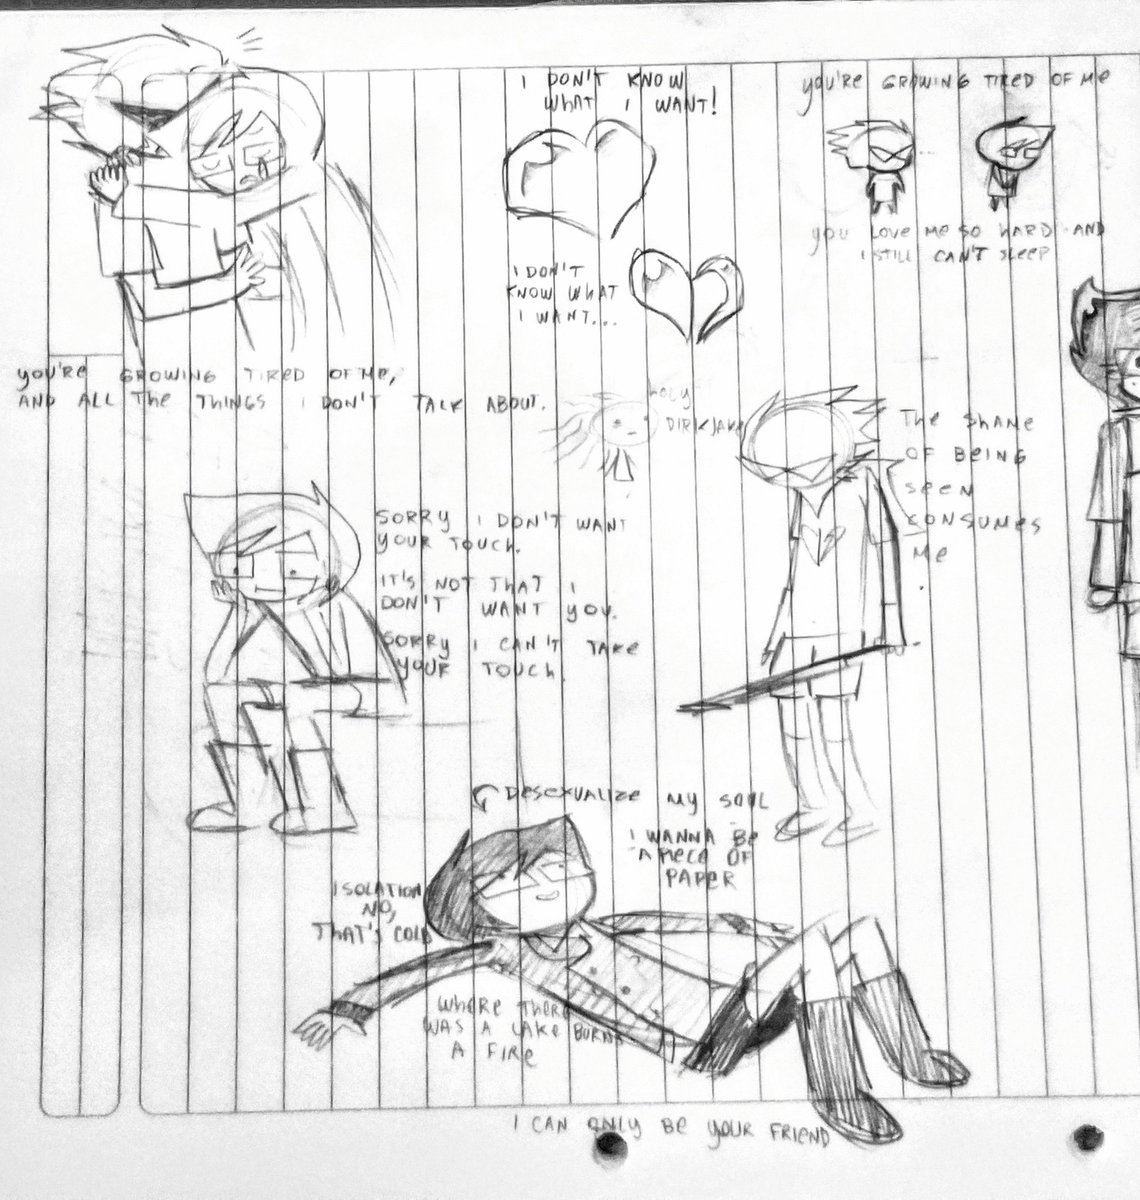 I DON'T KNOW
WHAT I WANT!
YOU'RE GROWING TIRED OF ME
YOU LOVE ME SO HARD AND
I STILL CAN'T SLEEP
I DON'T
KNOW WHAT
I WANT...
YOU'RE GROWING TIRED OF ME,
AND ALL THE THINGS I DON'T TALK ABOUT.
HOLY
DIRKJAKE
THE SHAME
OF BEING
SEEN
CONSUMES
ME
SORRY I DON'T WANT
YOUR TOUCH.
IT'S NOT THAT I
DON'T WANT YOU.
SORRY I CAN'T TAKE
YOUR TOUCH.
DESEXUALIZE MY SOUL
I WANNA BE
A PIECE OF
PAPER
ISOLATION
NO,
THAT'S COLD
WHERE THERE
WAS A LAKE BURNS
A FIRE
I CAN ONLY BE YOUR FRIEND